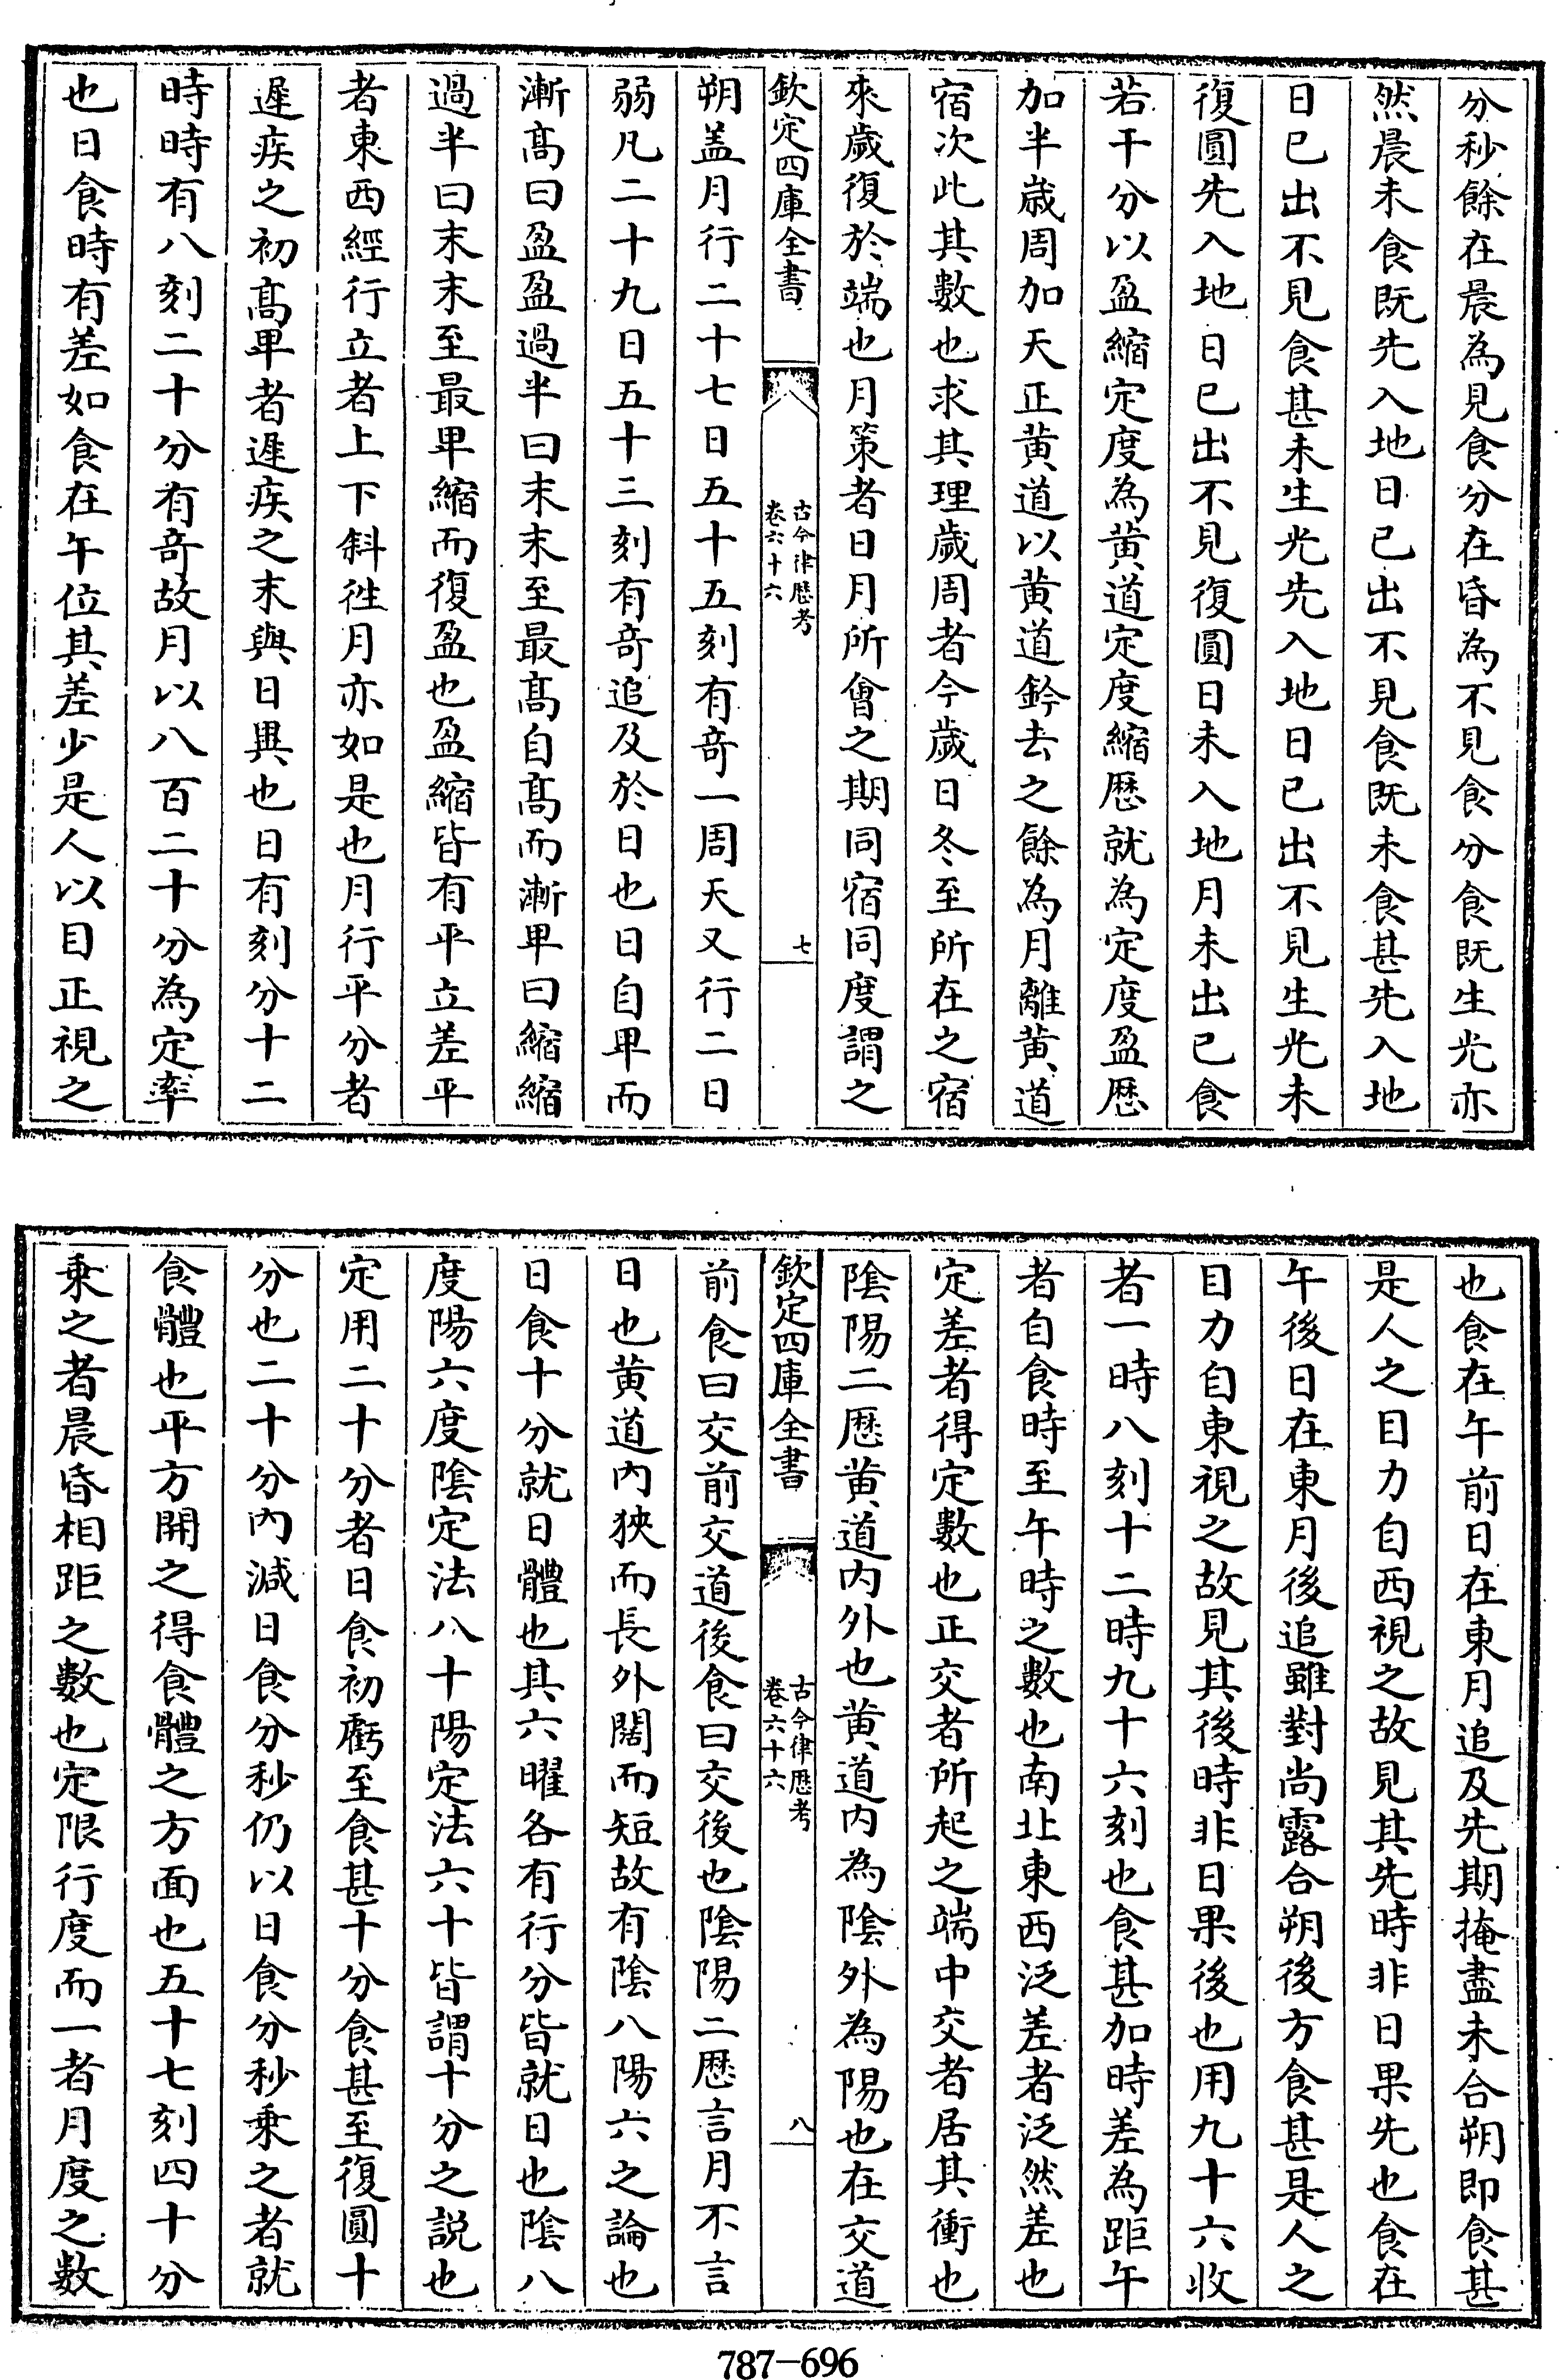 分秒餘在晨為見食分在昏為不見食分食既生光亦
然晨未食既先入地日已出不見食既未食甚先入地
日已出不見食甚未生光先入地日已出不見生光未
復圓先入地日已出不見復圓日未入地月未出已食
若干分以盈縮定度為黄道定度縮歴就為定度盈歴
加半歳周加天正黄道以黄道鈐去之餘為月離黄道
宿次此其數也求其理歳周者今歳日冬至所在之宿
來歳復於端也月策者日月所會之期同宿同度謂之
欽定四庫全書
古今律歴考
卷六十六
七
朔盖月行二十七日五十五刻有竒一周天又行二日
弱凡二十九日五十三刻有竒追及於日也日自卑而
漸髙曰盈盈過半曰末末至最髙自髙而漸卑曰縮縮
過半曰末末至最卑縮而復盈也盈縮皆有平立差平
者東西經行立者上下斜徃月亦如是也月行平分者
遲疾之初髙卑者遲疾之末與日異也日有刻分十二
時時有八刻二十分有竒故月以八百二十分為定率
也日食時有差如食在午位其差少是人以目正視之
也食在午前日在東月追及先期掩盡未合朔即食甚
是人之目力自西視之故見其先時非日果先也食在
午後日在東月後追雖對尚露合朔後方食甚是人之
目力自東視之故見其後時非日果後也用九十六收
者一時八刻十二時九十六刻也食甚加時差為距午
者自食時至午時之數也南北東西泛差者泛然差也
定差者得定數也正交者所起之端中交者居其衝也
陰陽二歴黄道内外也黄道内為陰外為陽也在交道
欽定四庫全書
古今律歴考
卷六十六
八
前食曰交前交道後食曰交後也陰陽二歴言月不言
日也黄道内狹而長外闊而短故有陰八陽六之論也
日食十分就日體也其六曜各有行分皆就日也陰八
度陽六度陰定法八十陽定法六十皆謂十分之説也
定用二十分者日食初虧至食甚十分食甚至復圓十
分也二十分内減日食分秒仍以日食分秒乗之者就
食體也平方開之得食體之方面也五十七刻四十分
乗之者晨昏相距之數也定限行度而一者月度之數
787-696